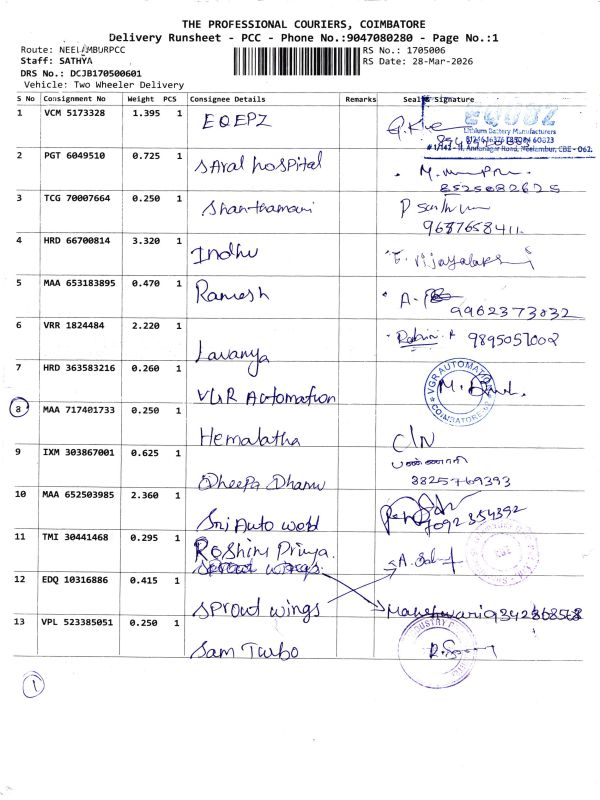 THE PROFESSIONAL COURIERS, COIMBATORE
Delivery Runsheet - PCC - Phone No.:9047080280 - Page No.:1
Route: NEELAMBURPCC
RS No.: 1705006
Staff: SATHYA
RS Date: 28-Mar-2026
DRS No.: DCJB170500601
Vehicle: Two Wheeler Delivery
S No Consignment No Weight PCS Consignee Details Remarks Seal & Signature
1 VCM 5173328 1.395 1 EQEPZ
Lithium Battery Manufacturers
Neelambur, CBE - 062.
2 PGT 6049510 0.725 1 SARAL HOSPITAL
8525082625
3 TCG 70007664 0.250 1 Shanthamani
9687658411
4 HRD 66700814 3.320 1 Indhu E. Vijayalakshmi
5 MAA 653183895 0.470 1 Ramesh
9962373032
6 VRR 1824484 2.220 1 Lavanya 9895057002
7 HRD 363583216 0.260 1 VGR Automation VGR AUTOMATION COIMBATORE-62
8 MAA 717401733 0.250 1 Hemalatha C/N
9 IXM 303867001 0.625 1 Dheepa Dharu
8825769393
10 MAA 652503985 2.360 1 Sri Auto weld 7092354392
11 TMI 30441468 0.295 1 Roshini Priya.
Sprowd wings.
12 EDQ 10316886 0.415 1 Sprowd wings Maheshwari
13 VPL 523385051 0.250 1 Sam Turbo
1